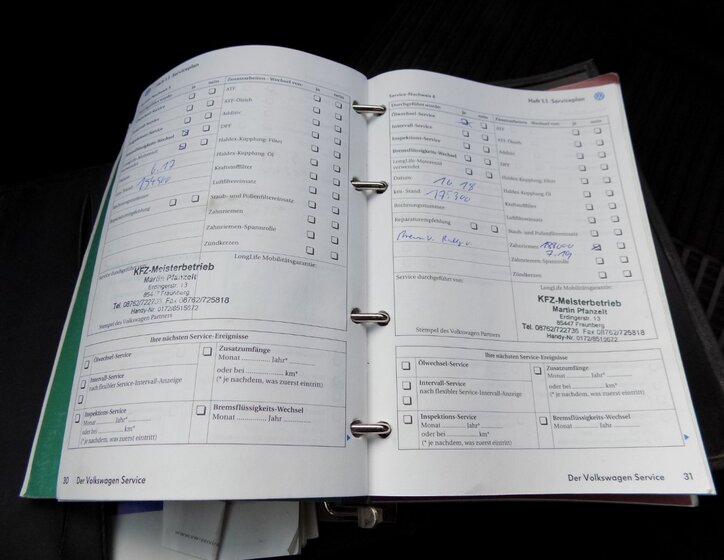 Heft 1.1 Serviceplan
Service-Nachweis 5
Durchgeführt wurde: ja nein
Ölwechsel-Service
Intervall-Service
Inspektions-Service
Bremsflüssigkeits-Wechsel
Datum 6.17
km-Stand
Rechnungsnummer
Reparaturempfehlung
Zusatzarbeiten - Wechsel von: ja nein
ATF
ATF-Ölsieb
Additiv
DPF
Haldex-Kupplung: Filter
Haldex-Kupplung: Öl
Kraftstofffilter
Luftfiltereinsatz
Staub- und Pollenfiltereinsatz
Zahnriemen
Zahnriemen-Spannrolle
Zündkerzen
LongLife Mobilitätsgarantie:
Service durchgeführt von:
KFZ-Meisterbetrieb
Martin Pfanzelt
Erdingerstr. 13
85447 Fraunberg
Tel. 08762/722735 Fax 08762/725818
Handy-Nr. 0172/8519672
Stempel des Volkswagen Partners
Ihre nächsten Service-Ereignisse
Ölwechsel-Service
Intervall-Service
nach flexibler Service-Intervall-Anzeige
Inspektions-Service
Monat ........ Jahr*........
oder bei ............... km*
(* je nachdem, was zuerst eintritt)
Zusatzumfänge
Monat ............ Jahr* ........
oder bei .................... km*
(* je nachdem, was zuerst eintritt)
Bremsflüssigkeits-Wechsel
Monat ............ Jahr ............
30 Der Volkswagen Service
Service-Nachweis 6
Heft 1.1 Serviceplan
Durchgeführt wurde: ja nein
Ölwechsel-Service
Intervall-Service
Inspektions-Service
Bremsflüssigkeits-Wechsel
LongLife-Motorenöl
verwendet
Datum 10 18
km-Stand
Rechnungsnummer
Reparaturempfehlung
Zusatzarbeiten - Wechsel von: ja nein
ATF
ATF-Ölsieb
Additiv
DPF
Haldex-Kupplung: Filter
Haldex-Kupplung: Öl
Kraftstofffilter
Luftfiltereinsatz
Staub- und Pollenfiltereinsatz
Zahnriemen
7.19
Zahnriemen-Spannrolle
Zündkerzen
LongLife Mobilitätsgarantie:
Service durchgeführt von:
KFZ-Meisterbetrieb
Martin Pfanzelt
Erdingerstr. 13
85447 Fraunberg
Tel. 08762/722735 Fax 08762/725818
Handy-Nr. 0172/8519672
Stempel des Volkswagen Partners
Ihre nächsten Service-Ereignisse
Ölwechsel-Service
Intervall-Service
nach flexibler Service-Intervall-Anzeige
Inspektions-Service
Monat ........ Jahr*........
oder bei ............... km*
(* je nachdem, was zuerst eintritt)
Zusatzumfänge
Monat ............ Jahr* ........
oder bei .................... km*
(* je nachdem, was zuerst eintritt)
Bremsflüssigkeits-Wechsel
Monat ............ Jahr ............
Der Volkswagen Service 31